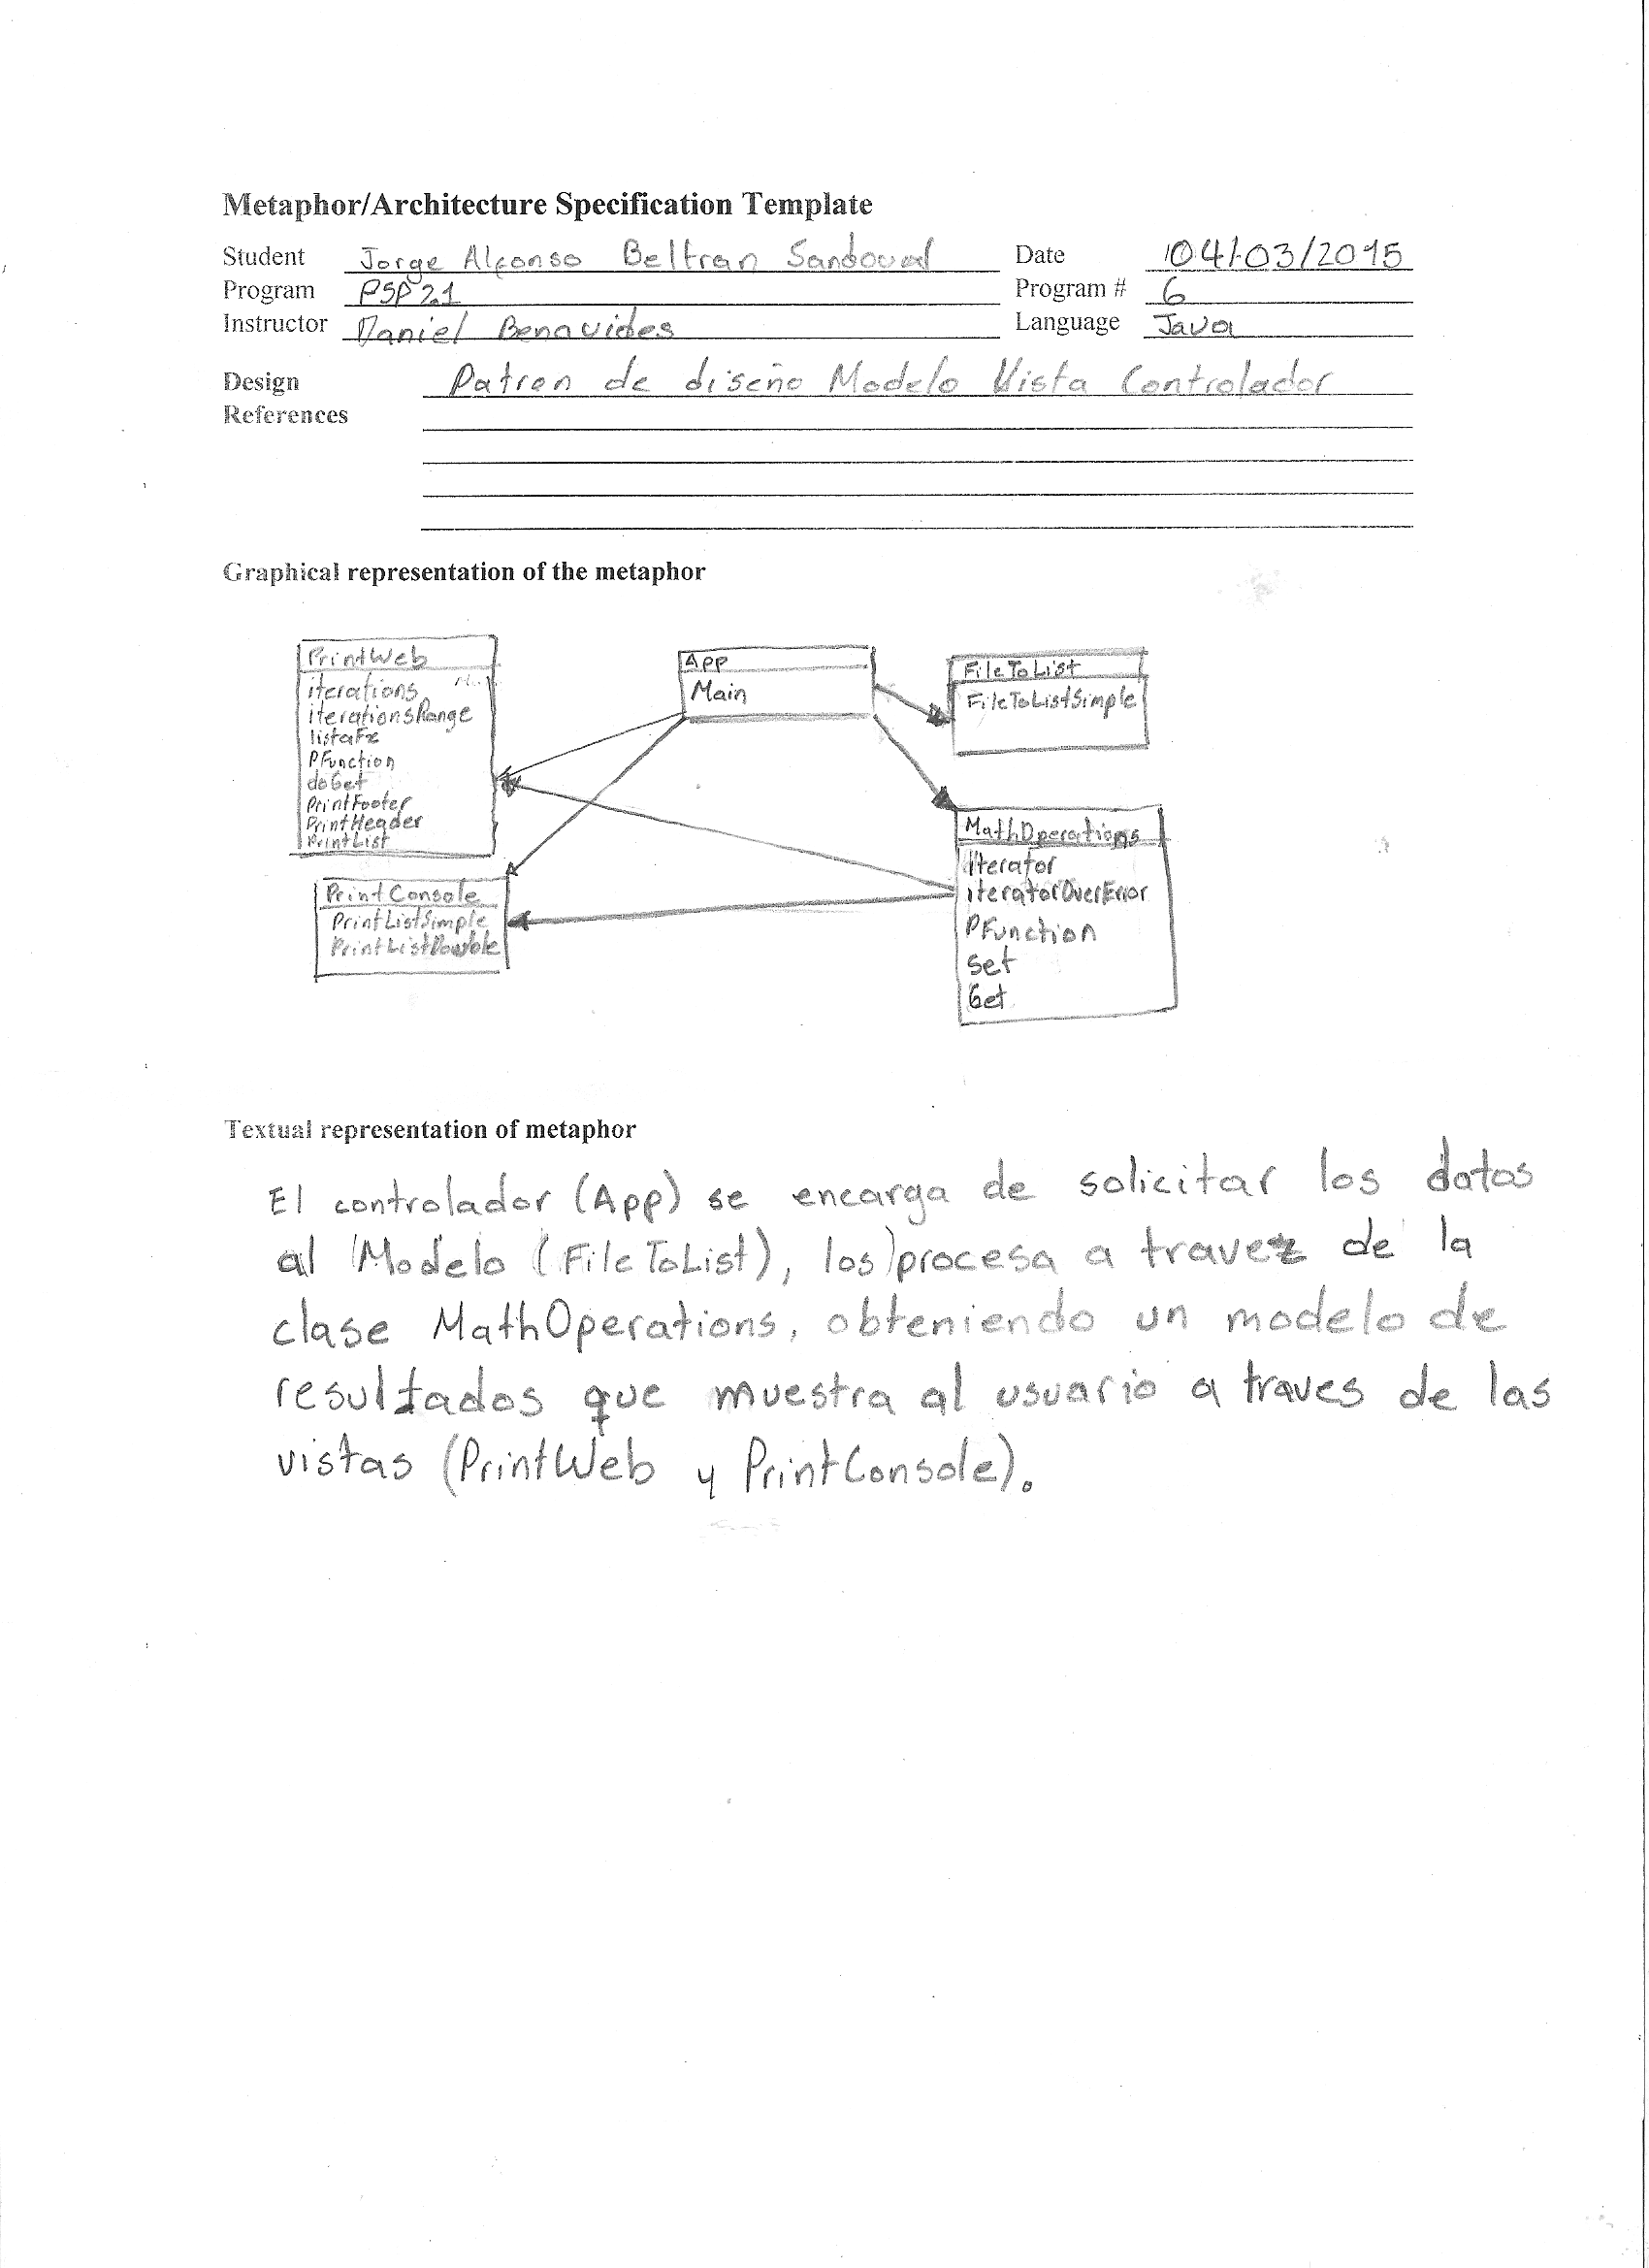 Metaphor/Architecture Specification Template
Student Jorge Alfonso Beltran Sandoval Date 04/03/2015
Program PSP 2.1 Program # 6
Instructor Daniel Benavides Language Java
Design Patron de diseño Modelo Vista Controlador
References
Graphical representation of the metaphor
PrintWeb
iterations
iterationsRange
listaFx
PFunction
doGet
PrintFooter
PrintHeader
PrintList
App
Main
FileToList
FileToListSimple
PrintConsole
PrintListSimple
PrintListDouble
MathOperations
Iterator
iteratorOverError
PFunction
Set
Get
Textual representation of metaphor
El controlador (App) se encarga de solicitar los datos
al Modelo (FileToList), los procesa a travez de la
clase MathOperations, obteniendo un modelo de
resultados que muestra al usuario a traves de las
vistas (PrintWeb y PrintConsole).